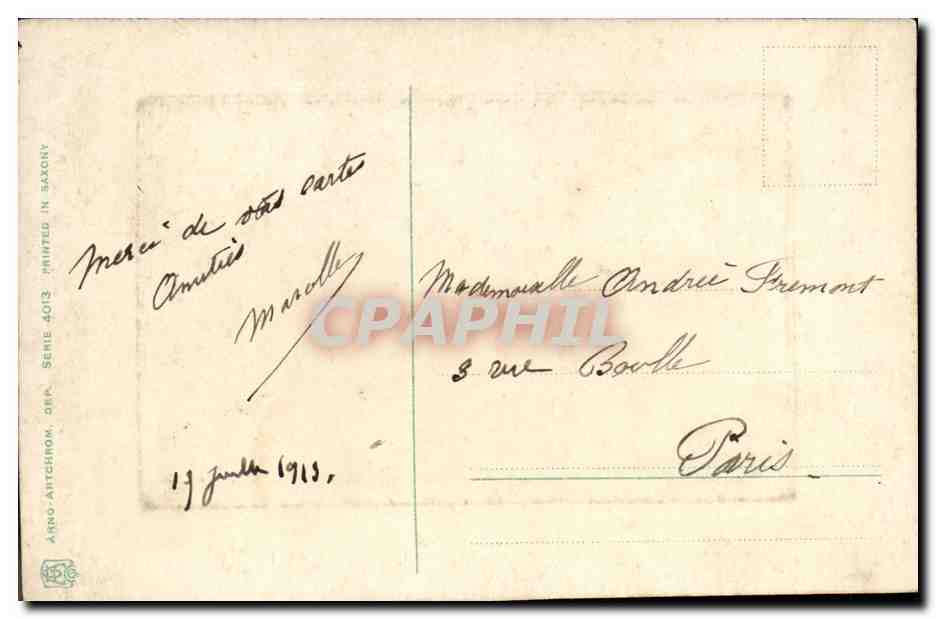 ARNO-ARTCHROM. DEP. SERIE 4013 PRINTED IN SAXONY
Merci de vos cartes
Amitiés
17 juillet 1913.
Mademoiselle Andrée Fremont
3 rue Boulle
Paris
CPAPHIL